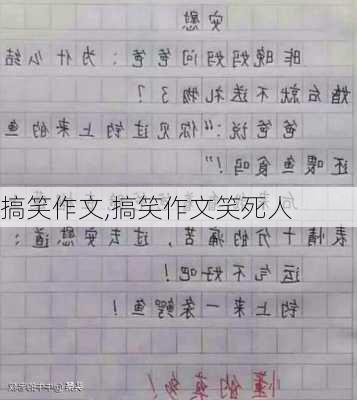 安慰
昨晚妈妈问爸爸：为什么结
婚后就不送礼物了？
爸爸说：“你见过钓上来的鱼
还喂鱼食吗”！
搞笑作文,搞笑作文笑死人
表情十分的痛苦，过去安慰道：
运气不好吧！
钓上来一条鳄鱼！
懂的真多！
头条@牛牛的